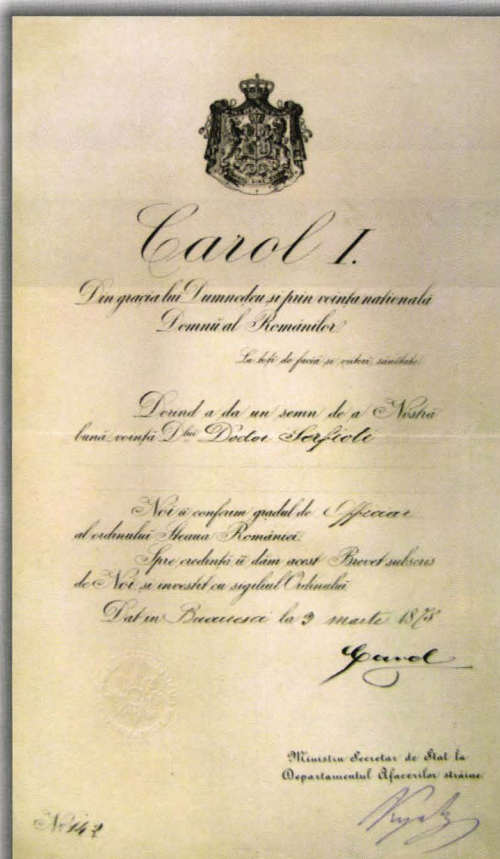 Carol I.
Din gracia lui Dumnedeu și prin voința națională
Domnŭ al Românilor
La toți de faciă și viitori sănĕtate
Dorind a da un semn de a Nostră
bună voință D lui Doctor Serfioti
Noi ii conferim gradul de Officiar
al ordinului Steaua României.
Spre credință ii dăm acest Brevet subscris
de Noi și investit cu sigiliul Ordinului
Dat in Bucuresci la 9 marte 1878
Carol
Ministru Secretar de Stat la
Departamentul Afacerilor străine
No 142